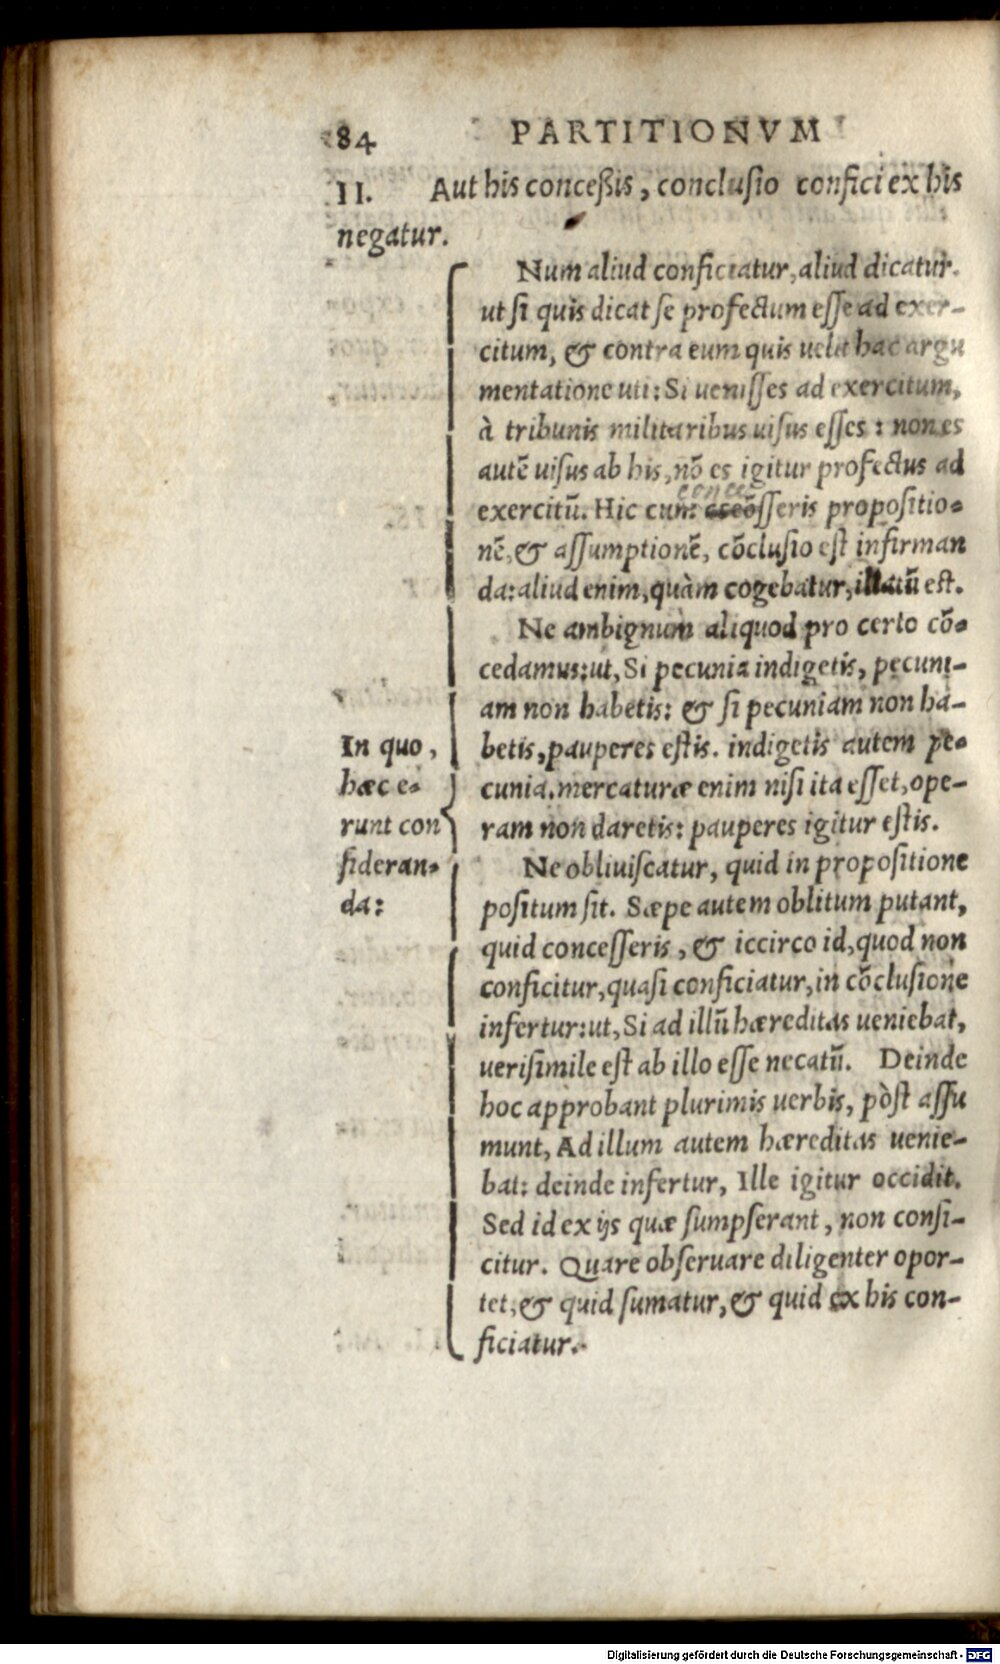 84 PARTITIONVM
II. Aut his conceßis, conclusio confici ex his
negatur.
Num aliud conficiatur, aliud dicatur.
ut si quis dicat se profectum esse ad exer-
citum, & contra eum quis uelit hac argu
mentatione uti: Si uenisses ad exercitum,
à tribunis militaribus uisus esses: non es
autē uisus ab his, nō es igitur profectus ad
conce
exercitū. Hic cum sseris propositio-
nē, & assumptionē, cōclusio est infirman
da: aliud enim, quàm cogebatur, illatū est.
Ne ambignum aliquod pro certo cō-
cedamus: ut, Si pecunia indigetis, pecuni-
am non habetis: & si pecuniam non ha-
betis, pauperes estis. indigetis autem pe-
cunia. mercaturæ enim nisi ita esset, ope-
ram non daretis: pauperes igitur estis.
In quo,
hæc e-
runt con
sideran-
da:
Ne obliuiscatur, quid in propositione
positum sit. Sæpe autem oblitum putant,
quid concesseris, & iccirco id, quod non
conficitur, quasi conficiatur, in cōclusione
infertur: ut, Si ad illū hæreditas ueniebat,
uerisimile est ab illo esse necatū. Deinde
hoc approbant plurimis uerbis, pòst assu
munt, Ad illum autem hæreditas uenie-
bat: deinde infertur, Ille igitur occidit.
Sed id ex ijs quæ sumpserant, non confi-
citur. Quare obseruare diligenter opor-
tet, & quid sumatur, & quid ex his con-
ficiatur.
Digitalisierung gefördert durch die Deutsche Forschungsgemeinschaft - DFG